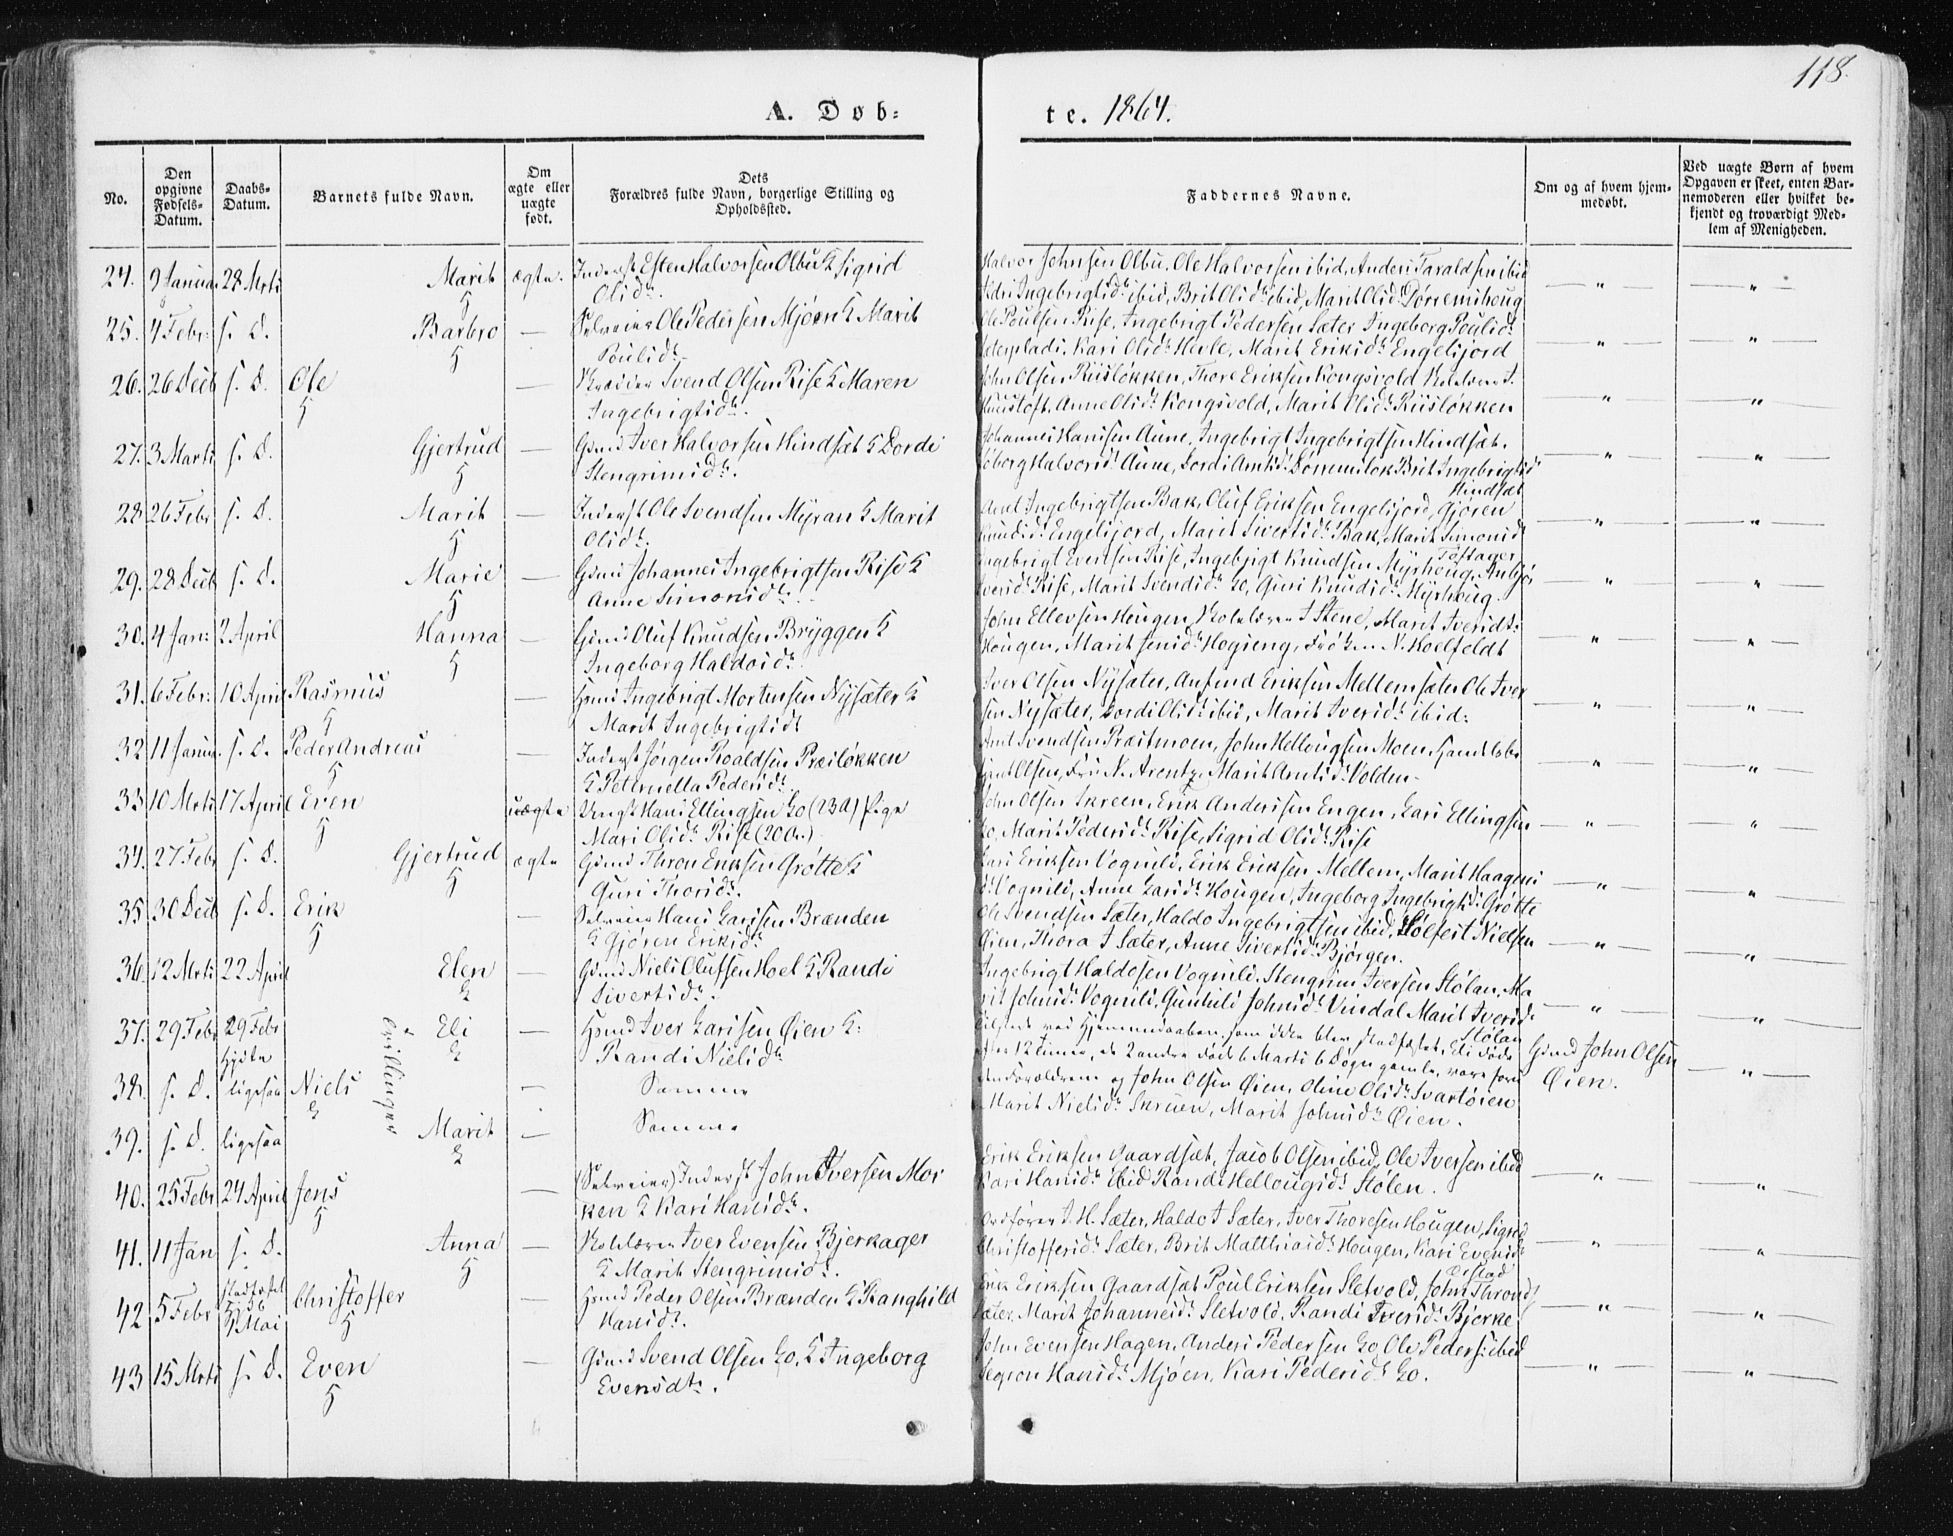 118.
A. Døb=
te. 1864.
No.
Den opgivne Fødsels-Datum.
Daabs-Datum.
Barnets fulde Navn.
Om ægte eller uægte født.
Dets Forældres fulde Navn, borgerlige Stilling og Opholdssted.
Faddernes Navne.
Om og af hvem hjem-medøbt.
Ved uægte Børn af hvem Opgaven er skeet, enten Bar-nemoderen eller hvilket be-kjendt og troværdigt Med-lem af Menigheden.
24. 9 Januar 28 Mrts Marit ægte. Inderst Esten Halvorsen Olbu & Sigrid
Olsdt.
Halvor Johnsen Olbu, Ole Halvorsen ibid, Anders Taraldsen ibid
Ingebrigtsdt ibid, Brit Olsdt ibid, Marit Olsdt Dørremshoug
25. 4 Febr: s. D. Barbro — Selveier Ole Pedersen Mjøen & Marit
Poulsdt.
Ole Poulsen Rise, Ingebrigt Pedersen Sæter, Ingeborg Poulsdt
Kari Olsdt Hevle, Marit Eriksdt Engelsjord
26. 26 Decb s. D. Ole — Svend Olsen Rise & Maren
Ingebrigtsdt.
John Olsen Riisløkken, Thore Eriksen Kongsvold
Anne Olsdt Kongsvold, Marit Olsdt Riisløkken
27. 3 Marts s. D. Gjertrud — Gmd Iver Halvorsen Hindsæt & Dordi
Stengrimsdt.
Johannes Hansen Aune, Ingebrigt Ingebrigtsen Hindsæt.
Halvorsdt Aune, Brit Ingebrigtsdt
Hindsæt
28. 26 Febr s. D. Marit — Inderst Ole Svendsen Myran & Marit
Olsdt.
Arnt Ingebrigtsen Bak, Oluf Eriksen Engelsjord, Gjøren
Knudsdt Engelsjord, Marit Sivertsdt Bak, Marit Simonsdt
Tøftager
29. 28 Decb s. D. Marie — Gmd Johannes Ingebrigtsen Rise &
Anne Simonsdt.
Ingebrigt Evensen Rise, Ingebrigt Knudsen Myrhoug, Anbjør
Iversdt Rise, Marit Svendsdt Lo, Guri Knudsdt Myrhoug.
30. 4 Jan: 2 April Hanna — Gmd Oluf Knudsen Bryggen &
Ingeborg Haldosdt.
John Ellevsen Hougen, I Stene, Marit Iversdt:
Hougen, Marit Hogseng, Frøken N. Koelfeldt
31. 6 Febr: 10 April Rasmus — Hsmd Ingebrigt Mortensen Nysæter &
Marit Ingebrigtsdt
Iver Olsen Nysæter, Anfind Eriksen Mellemsæter Ole Iver
sen Nysæter, Dordi Olsdt ibid, Marit Iversdt ibid:
32 11 Januar. s. D. Peder Andreas — Inderst Jørgen Roaldsen Præsløkken
& Petternella Pedersdt.
Arnt Svendsen Præstmoen, John Hellougsen Moen, Handelsbe
tjent Olsen, Fru N. Arentz, Marit Arntsdt Volden
33 10 Mrts 17 April Even uægte Ungk Hans Ellingsen Lo (23 A) Pige
Mari Olsdt Rise (20 A.)
John Olsen Skreen, Erik Andersen Engen, Lars Ellingsen
Lo, Marit Pedersdt Rise, Sigrid Olsdt Rise
34. 27 Febr s. D. Gjertrud ægte Gsmd Thron Eriksen Grøtte &
Guri Thorsdt.
Lars Eriksen Vognild, Erik Eriksen Mellem, Marit Haagens
dt Vognild, Anne Larsdt Hougen, Ingeborg Ingebrigtsdt Grøtte
35 30 Decb s. D. Erik — Selveier Hans Larsen Brænden
& Gjøren Eriksdt
Ole Svendsen Sæter, Haldo Ingebrigtsen ibid, Nielsen
Øien, Thora I Sæter, Anne Sivertsdt Bjørgen.
36. 12 Mrts 22 April Elen — Gmd Niels Olufsen Hoel & Randi
Sivertsdt.
Ingebrigt Haldosen Vognild, Stengrim Iversen Stølan, Ma
rit Johnsdt Vognild, Gunhild Johnsdt Vindal Marit Iversdt
Stølan
37. 29 Febr 29 Febr hjdbt Trillinger Eli — Hsmd Iver Larsen Øien &:
Randi Nielsdt.
Tilstede ved Hjemmedaaben, som ikke blev stadfæstet, Eli døde
efter 12 Timer, de 2 andre døde 6 Marts 6 Døgn gamle, vare foru
den Forældrene og John Olsen Øien, Oline Olsdt Svartøien
Gmd John Olsen
Øien.
38. s. D. ligesaa Niels — Samme
Marit Nielsdt Skreen, Marit Johnsdt Øien.
39. s. D. ligesaa Marit — Samme
40. 25 Febr 24 April Jens — (Selveier) Inderst John Iversen Mor
ken & Kari Hansdt.
Erik Eriksen Gaardsæt, Jacob Olsen ibid, Ole Iversen ibid
Kari Hansdt ibid Randi Hellougsdt Stølen.
41. 11 Jan s. D. Anna — Skolelærer Iver Evensen Bjerkager
& Marit Stengrimsdt.
Ordfører I. H. Sæter, Haldo I Sæter, Iver Thoresen Hougen, Sigrid
Christoffersdt Sæter, Brit Matthiasdt Hougen, Kari Evensdt
42 5 Febr stadfæstet 5 Mai Christoffer — Hsmd Peder Olsen Brænden & Ranghild
Hansdt.
Erik Eriksen Gaardsæt Poul Eriksen Sletvold, John Thronds
Sæter, Marit Johannesdt Sletvold, Randi Iversdt Bjerke
43 15 Mrts s. D. Even — Gmd Svend Olsen Lo, & Ingeborg
Evensdt.
John Evensen Hagen, Anders Pedersen Lo, Ole Peders: ibid
Hansdt Mjøen, Kari Pedersdt Lo.